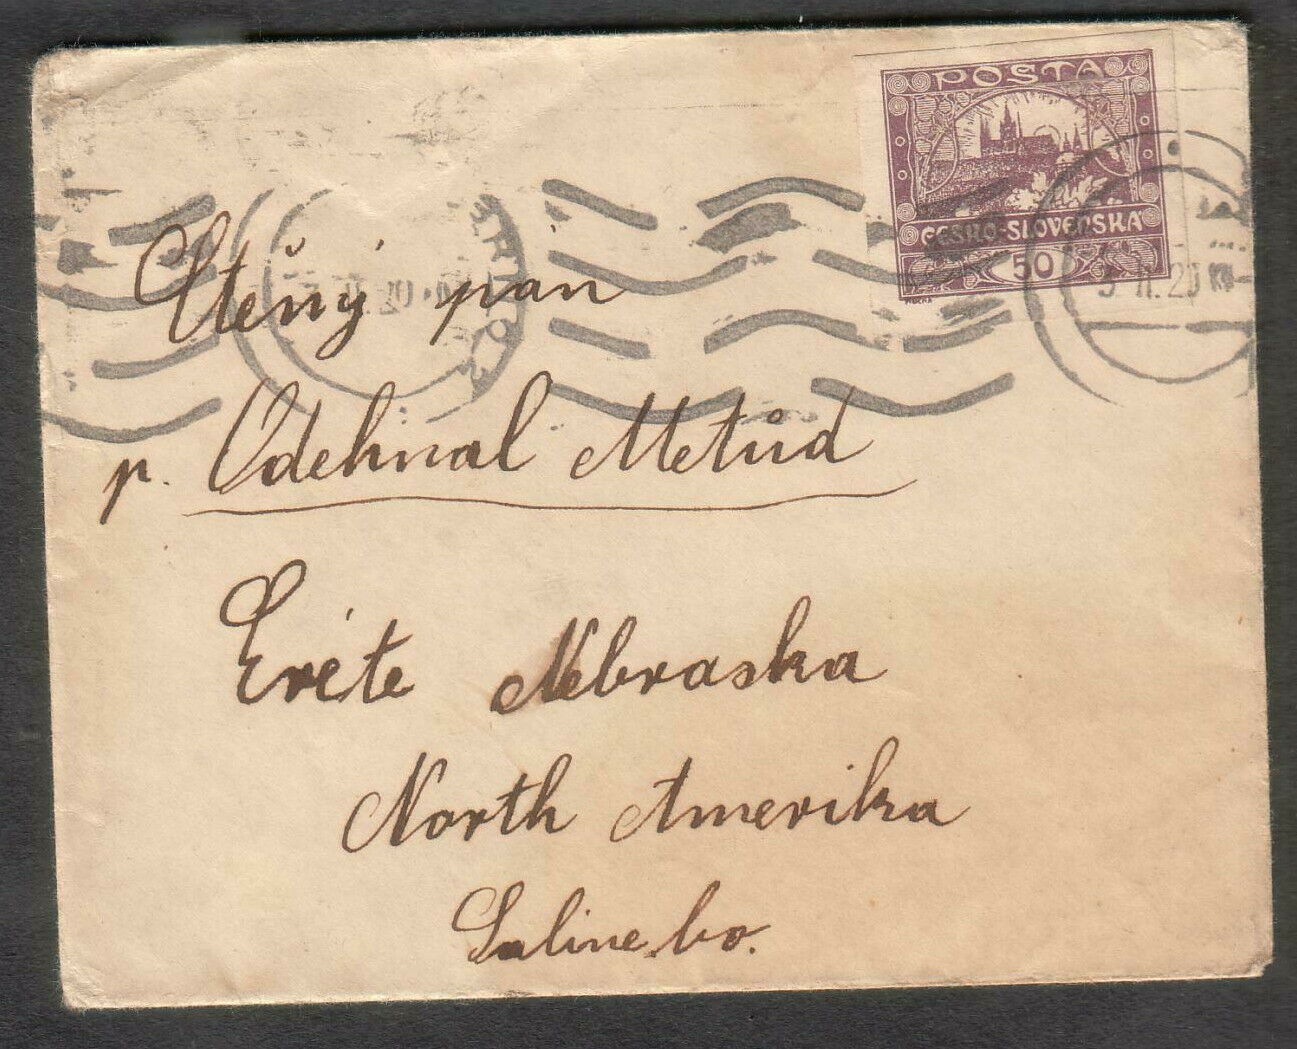 POSTA
ČESKO-SLOVENSKA
50
MUCHA
Ctěný pán
p. Odehnal Metůd
Créte Nebraska
North Amerika
Saline Co.